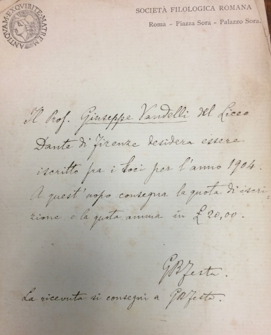 SOCIETÀ FILOLOGICA ROMANA
Roma - Piazza Sora - Palazzo Sora
Il Prof. Giuseppe Vandelli del Liceo
Dante di Firenze desidera essere
iscritto fra i Soci per l'anno 1904.
A quest'uopo consegna la quota di iscri-
zione e la quota annua in £ 20,00.
GBFesta.
La ricevuta si consegni a GBFesta.